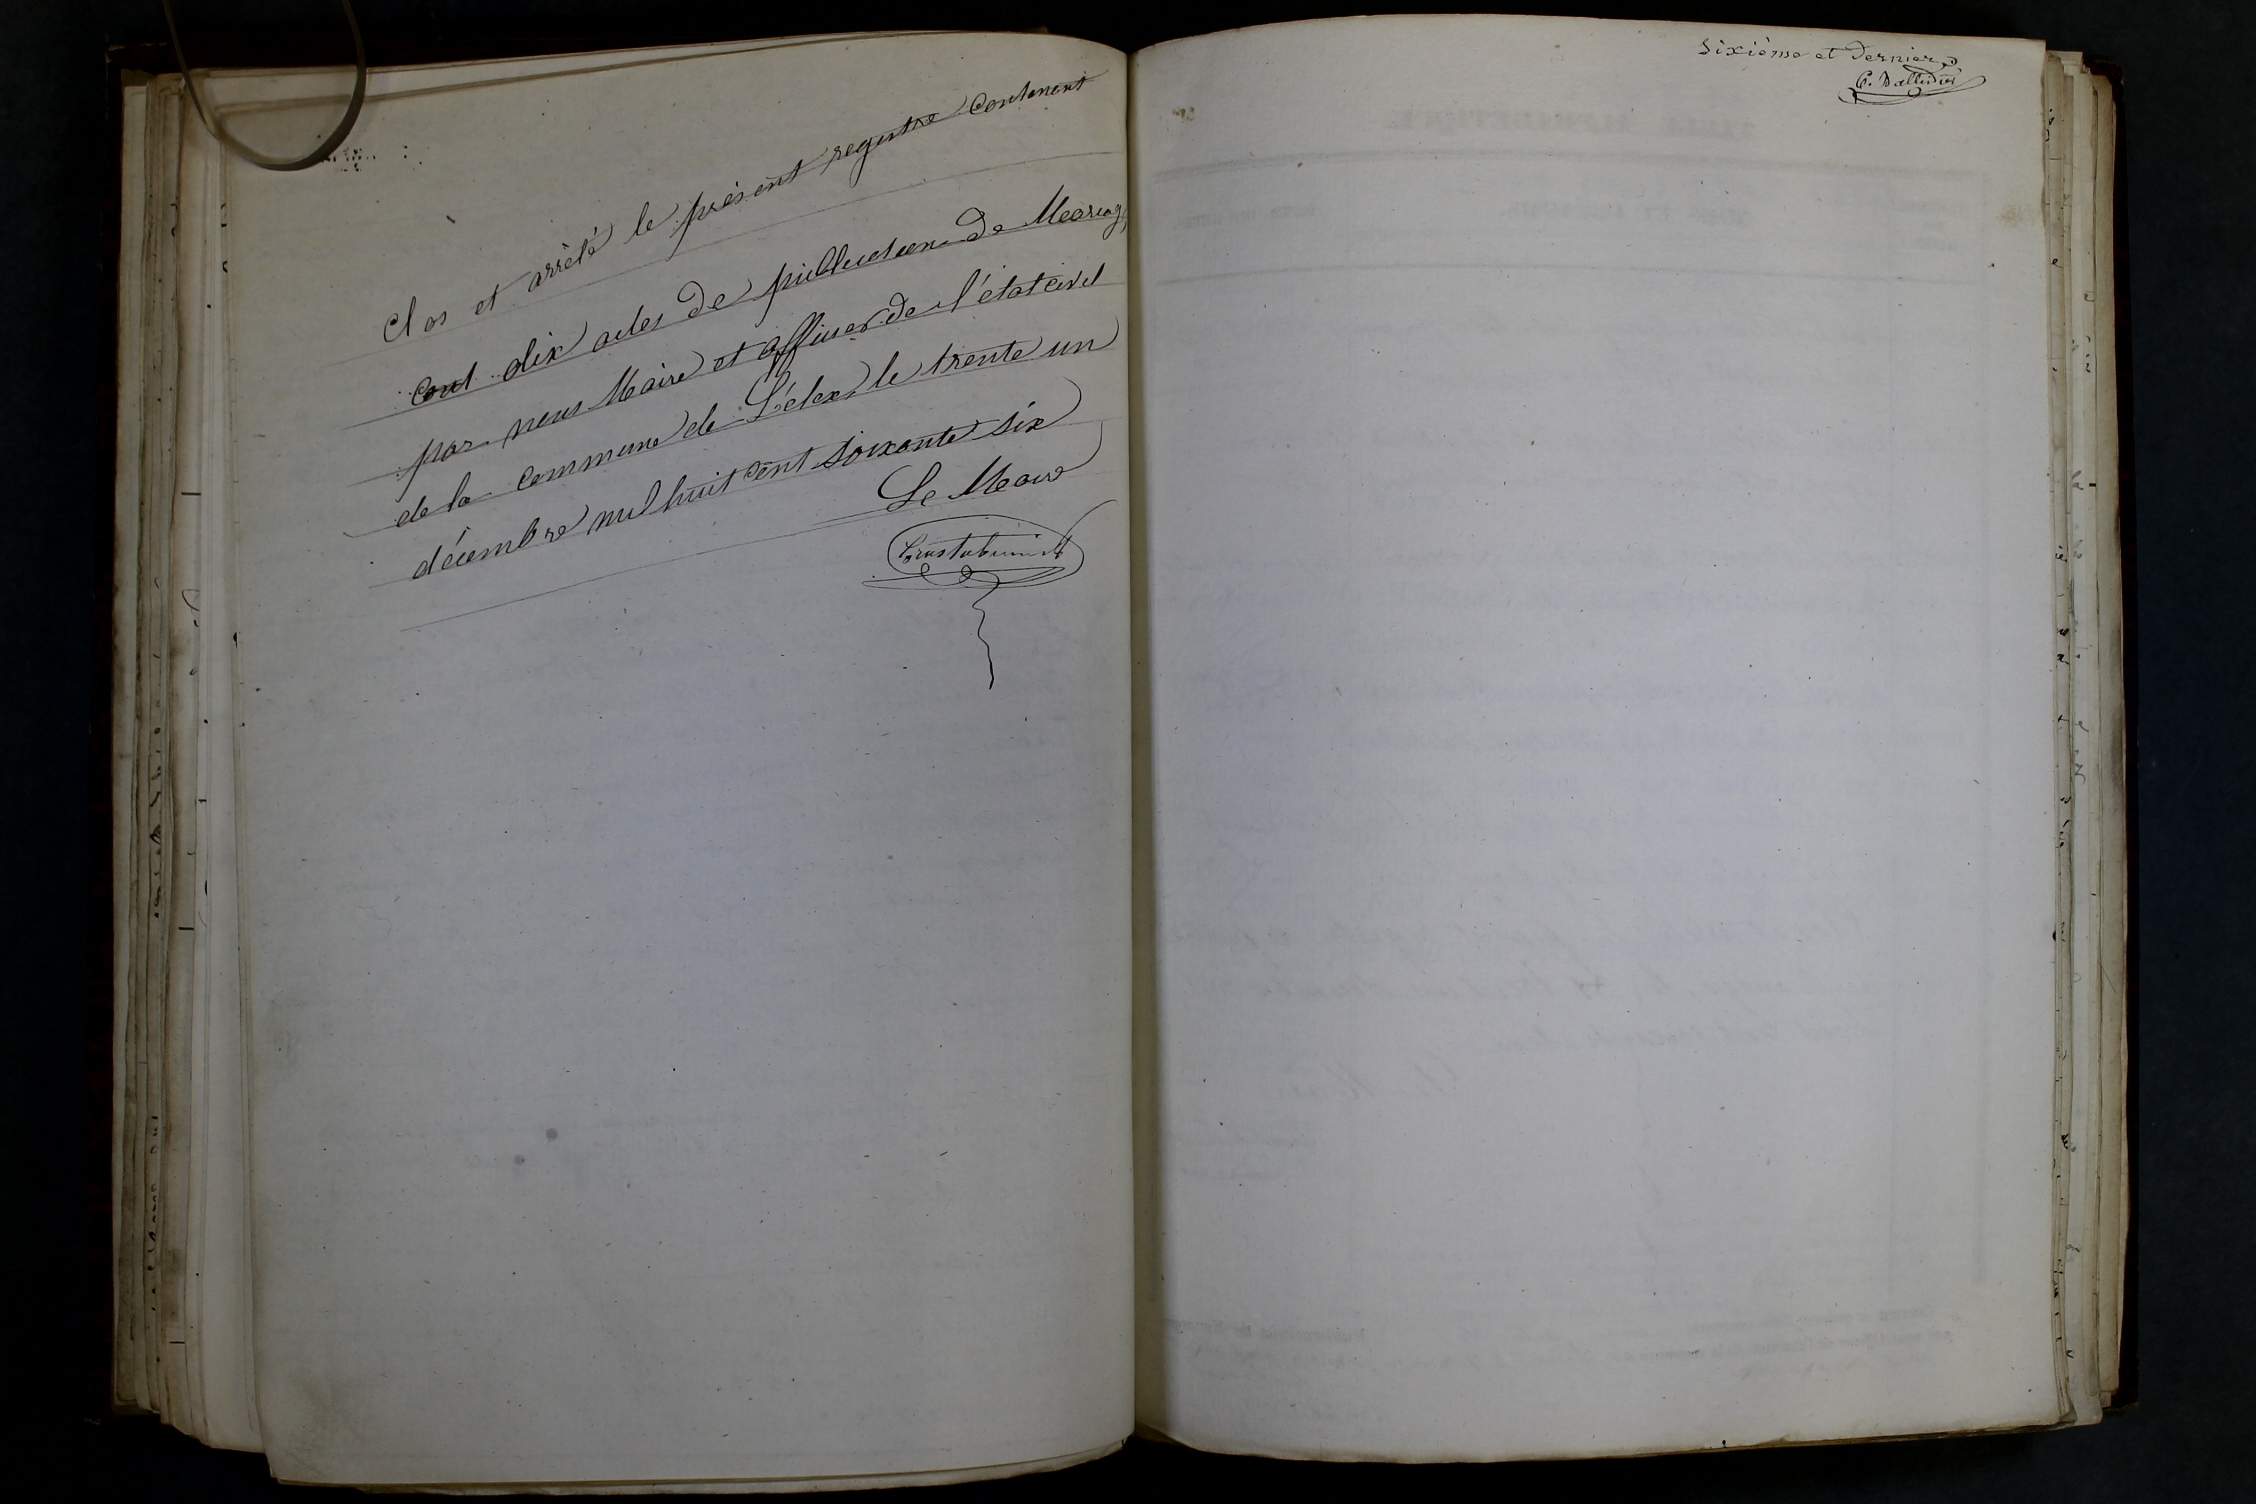 Clos et arrêté le présent registre contenent
dix actes de publication de Mariage
par nous Maire et officier de l'état civil
de la commune de Lélex, le trente un
décembre mil huit cent soixante six
Le Maire
Sixième et Dernier